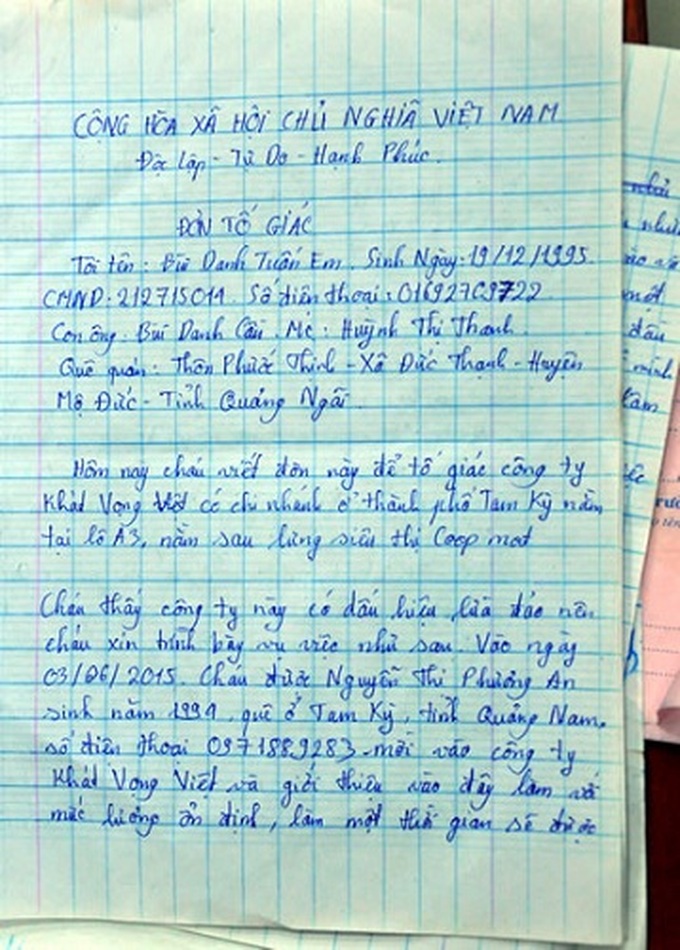 CỘNG HÒA XÃ HỘI CHỦ NGHĨA VIỆT NAM
Độc lập - Tự Do - Hạnh Phúc.
ĐƠN TỐ GIÁC
Tôi tên : Bùi Danh Tuấn Em. Sinh Ngày: 19/12/1995.
CMND: 212715011. Số điện thoại: 01692709722
Con ông: Bùi Danh Cầu. Mẹ: Huỳnh Thị Thanh.
Quê quán: Thôn Phước Thịnh - Xã Đức Thạnh - Huyện
Mộ Đức - Tỉnh Quảng Ngãi.
Hôm nay cháu viết đơn này để tố giác công ty
Khát Vọng Việt có chi nhánh ở thành phố Tam Kỳ nằm
tại lô A3, nằm sau lưng siêu thị Coop mat
Cháu thấy công ty này có dấu hiệu lừa đảo nên
cháu xin trình bày vụ việc như sau. Vào ngày
03/06/2015. Cháu được Nguyễn Thị Phương An
sinh năm 1994, quê ở Tam Kỳ, tỉnh Quảng Nam.
số điện thoại 0971889283 mời vào công ty
Khát Vọng Việt và giới thiệu vào đây làm với
mức lương ổn định, làm một thời gian sẽ được